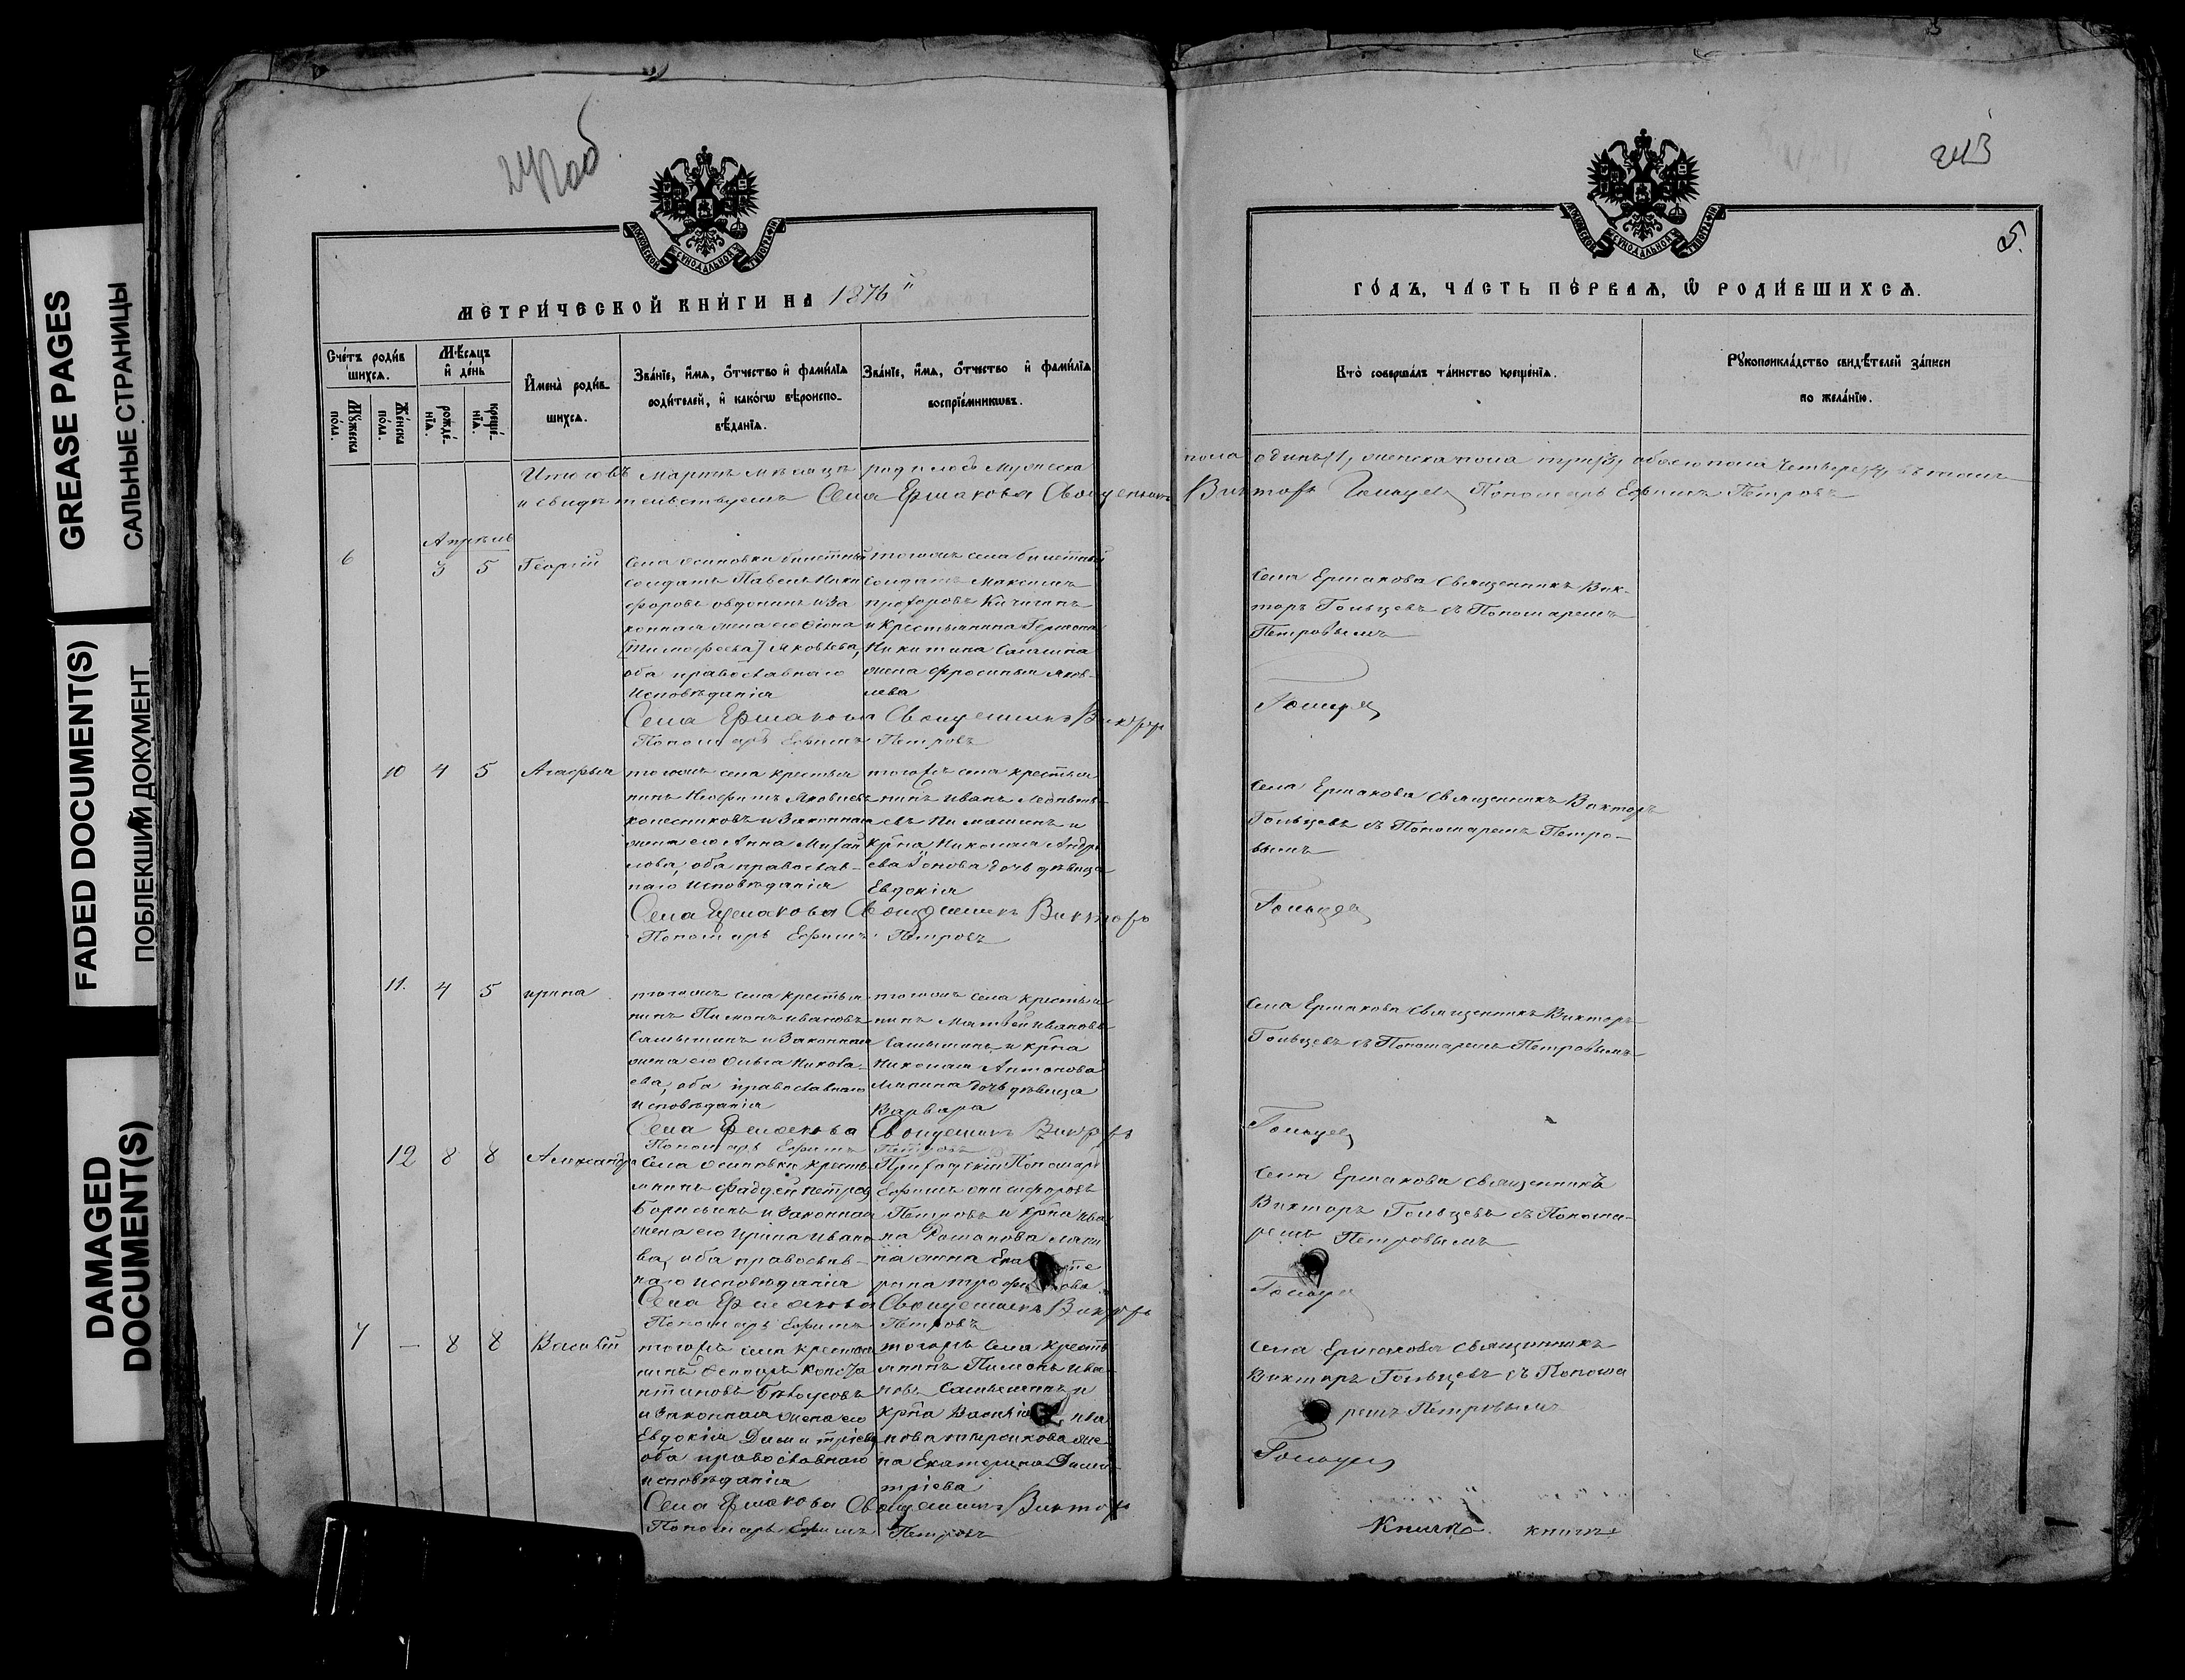 GREASE PAGES
САЛЬНЫЕ СТРАНИЦЫ
FADED DOCUMENT(S)
ПОБЛЕКШИЙ ДОКУМЕНТ
DAMAGED
DOCUMENT(S)
243
5.
МОСКОВСКОЙ СѴНОДАЛЬНОЙ ТИПОГРАФІИ
МЕТРИ́ЧЕСКОЙ КНИ́ГИ НА 1876
Сче́тъ роди́в
шихся.
Му́жеска
пола.
Же́нска
пола.
Мѣ́сяцъ
и҆ де́нь
рожде́-
нїѧ.
креще́-
нїѧ.
И҆мена̀ роди́в-
шихся.
Зва́нїе, и҆́мѧ, ѻ҆́тчество и҆ фами́лїѧ
роди́телей, и҆ како́гѡ вѣ̀роиспо-
вѣ́данїѧ.
Зва́нїе, и҆́мѧ, ѻ҆́тчество и҆ фами́лїѧ
воспрїе́мникѡвъ.
Итого въ Мартѣ мѣсяцѣ родилось мужеска
и свидѣтельствуемъ Села Ермакова Священникъ
Апрѣль
6
3
5
Георгій
Села Осиновки билетный
солдатъ Павелъ Ники
форовъ и За
конная жена его
[Тимофеева] Яковлева,
оба православнаго
Исповѣданія
тогожъ села билетный
солдатъ Максимъ
Прохоровъ Кичигинъ
и Крестьянина
Никитина
жена Фросинья Яков-
лева
Села Ермакова Священникъ Викторъ
Пономарь Ефимъ Петровъ
10
4
5
Агафья
тогожъ села крестья
нинъ Яковлевъ
Колесниковъ и Законная
жена его Анна Михай
лова, оба православ-
наго Исповѣданія
тогожъ села крестья
нинъ Иванъ
и
крна Николая Андре
ева дочь дѣвица
Евдокія
Села Ермакова Священникъ Викторъ
Пономарь Ефимъ Петровъ
11.
4
5
Ирина
тогожъ села крестья
нинъ Пимонъ Ивановъ
и Законная
жена его Ольга Никола-
ева, оба православнаго
Исповѣданія
тогожъ села крестья
нинъ Матвей Ивановъ
и крна
Николая Антонова
дочь дѣвица
Варвара
Села Ермакова Священникъ Викторъ
Пономарь Ефимъ Петровъ
12
8
8
Александра
Села Осиновки кресть
янинъ Фаддей Петровъ
и Законная
жена его Ирина Ивано
ва, оба православ-
наго Исповѣданія
Пономарь
Ефимъ
Петровъ и крна Ива
на Романова
жена Ека
рина
Села Ермакова Священникъ Викторъ
Пономарь Ефимъ Петровъ
7
—
8
8
Василій
тогожъ села крестья
нинъ
Бѣлоусовъ
и Законная жена его
Евдокія Димитріева
оба православнаго
исповѣданія
тогожъ села кресть
янинъ Пимонъ Ива
новъ и
крна Василія Ива
нова же
на Екатерина Дими
тріева
Села Ермакова Священникъ Викторъ
Пономарь Ефимъ Петровъ
МОСКОВСКОЙ СѴНОДАЛЬНОЙ ТИПОГРАФІИ
ГО́ДЪ, ЧА́СТЬ ПЕ́РВАѦ, Ѡ҆ РОДИ́ВШИХСѦ.
Кто̀ соверша́лъ та́инство креще́нїѧ.
Рꙋкоприкла́дство свидѣ́телей за́писи
по жела́нїю.
пола одинъ (1), женска пола три (3), обоего пола четверо (4), въ томъ
Викторъ Гольцевъ Пономарь Ефимъ Петровъ
Села Ермакова Священникъ Вик-
торъ Гольцевъ съ Пономаремъ
Петровымъ
Гольцевъ
Села Ермакова Священникъ Викторъ
Гольцевъ съ Пономаремъ Петро-
вымъ
Гольцевъ
Села Ермакова Священникъ Викторъ
Гольцевъ съ Пономаремъ Петровымъ
Гольцевъ
Села Ермакова Священникъ
Викторъ Гольцевъ съ Понома-
ремъ Петровымъ
Гольцевъ
Села Ермакова Священникъ
Викторъ Гольцевъ съ Понома
ремъ Петровымъ
Гольцевъ